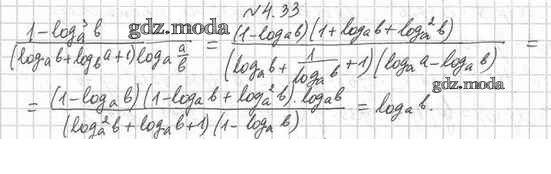 №4.33
(1 - log_a^3 b) / ((log_a b + log_b a + 1) log_a a/b) = ((1 - log_a b)(1 + log_a b + log_a^2 b)) / ((log_a b + 1/(log_a b) + 1)(log_a a - log_a b)) =
gdz.moda
gdz.moda
= ((1 - log_a b)(1 - log_a b + log_a^2 b) · log_a b) / ((log_a^2 b + log_a b + 1)(1 - log_a b)) = log_a b.